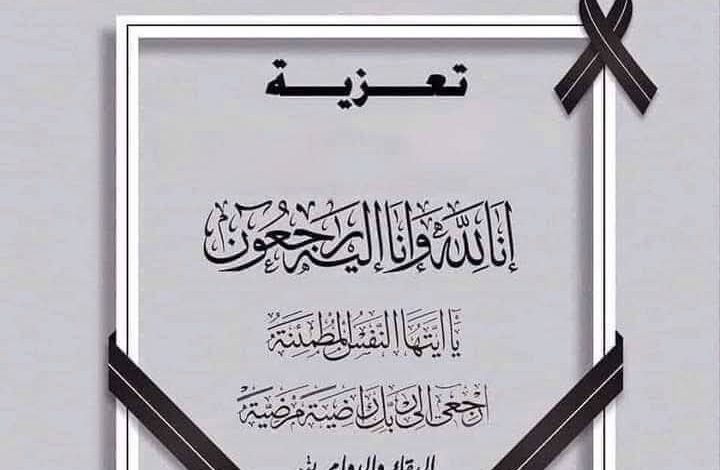 تعزية
إنا لله وإنا إليه راجعون
يا أيتها النفس المطمئنة
ارجعي إلى ربك راضية مرضية
البقاء والدوام لله